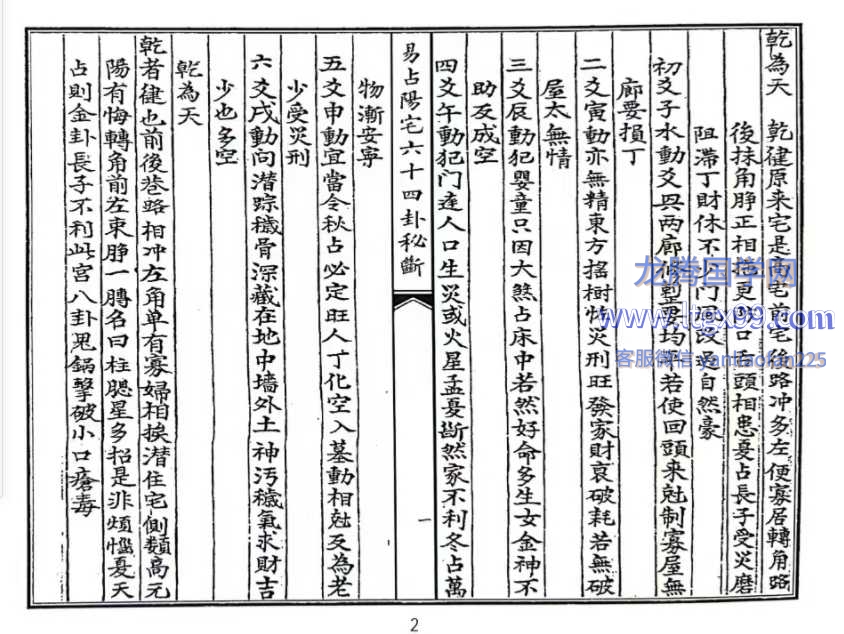 乾為天　乾健原来宅是高宅前宅後路冲多左便寡居轉角路
後抹角睁正相 更 口舌頭相患憂占長子受災磨
阻滞丁財休不少門風改過自然豪
初爻子水動爻與两廊 要均平若使回頭来尅制寡屋無
廊要損丁
二爻寅動亦無精東方搖樹惊災刑旺發家財哀破耗若無破
屋太無情
三爻辰動犯嬰童只因大煞占床中若然好命多生女金神不
助反成空
四爻午動犯门逹人口生災或火星孟憂斷然家不利冬占萬
易占陽宅六十四卦秘斷
一
物漸安寧
五爻申動宜當令秋占必定旺人丁化空入墓動相尅反為老
少受災刑
六爻戌動向潜踪穢骨深藏在地中墙外土神汚穢氣求財吉
少也多空
乾為天
乾者健也前後巷路相冲左角单有寡婦相挨潜住宅側類高元
陽有悔轉角前左東睁一膊名曰柱腮星多招是非煩惱夏天
占則金卦長子不利此宫八卦忌鍋擎破小口瘡毒
龙腾国学网
www.ltgx99.com
客服微信 yankaofan225
2